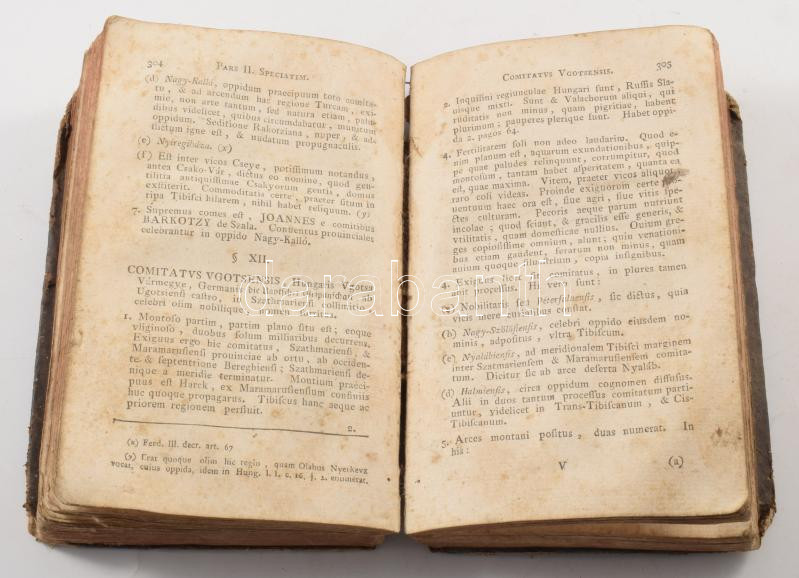 304 PARS II. SPECIATIM.
(d) Nagy-Kalló, oppidum praecipuum toto comita-
tu, & ad arcendum hac regione Turcam, exi-
mie, non arte tantum, sed natura etiam, palu-
dibus videlicet, quibus circumdabatur, munitum
oppidum. Seditione Rakotziana, nuper, & ad-
flictum igne est, & nudatum propugnaculis.
(e) Nyiregiháza. (x)
(f) Est inter vicos Cseye, potissimum notandus,
antea Csako-Vár, dictus eo nomine, quod gen-
tilitia antiquissimae Csakyorum gentis, domus
exstiterit. Commoditatis certe, praeter situm in
ripa Tibisci hilarem, nihil habet reliquum. (y)
7. Supremus comes est, JOANNES e comitibus
BARKOTZY de Szala. Conuentus prouinciales
celebrantur in oppido Nagy-Kalló.
§ XII.
COMITATVS VGOTSENSIS, Hungaris Vgotsa
Vármegye, Germanis
Ugotsiensi castro, in Szathmariensi collimitio,
celebri olim nobilique, nomen sortitus.
1. Montoso partim, partim plano situ est; eoque
vliginoso, duobus solum milliaribus decurrens.
Exiguus ergo hic comitatus, Szathmariensi, &
Maramarusiensi prouinciae ab ortu, ab occiden-
te & septentrione Bereghiensi; Szathmariensi de-
nique a meridie terminatur. Montium praeci-
puus est Harck, ex Maramarusiensium confiniis
huc quoque propagarus. Tibiscus hanc aeque ac
priorem regionem persluit.
2.
(x) Ferd. III. decr. art. 67
(y) Erat quoque olim hic regio, quam Olahus Nyerkevz
vocat, cuius oppida, idem in Hung. l. I. c. 16, §. 2. enumerat.
COMITATVS VGOTSENSIS. 305
2. Inquilini regiunculae Hungari sunt, Russis Sla-
uisque mixti. Sunt & Valachorum aliqui, qui
ruditatis non minus, quam pigritiae, habent
plurimum; pauperes plerique sunt. Habet oppi-
da 2. pagos 64.
4. Fertilitatem soli non adeo laudarim. Quod e-
nim planum est, aquarum exundationibus, quip-
pe quae paludes relinquunt, corrumpitur, quod
montosum, tantum habet asperitatem, quanta ea
est, quae maxima. Vitem, praeter vicos aliquot,
raro coli videas. Proinde exiguorum certe
uentuum haec ora est, siue agri, siue vitis spe-
ctes culturam. Pecoris aeque parum nutriunt
incolae; quod sciant, & gracilis esse generis, &
vtilitatis, quam domesticae nullius. Ouium gre-
ges copiosissime omnium, alunt; quin venationi-
bus etiam gaudent, ferarum non minus, quam
auium quoque illustrium, copia insignibus.
4. Exiguus licet sit comitatus, in plures tamen
it processus. Hi vero sunt:
(a) Nobilitaris seu Peterfaluensis, sic dictus, quia
vicis mere curialibus constat.
(b) Nagy-Szöllösiensis, celebri oppido eiusdem no-
minis, adpositus, vltra Tibiscum.
(c) Nyalábiensis, ad meridionalem Tibisci marginem
inter Szatmariensem & Maramarusiensem comita-
tum. Dicitur sic ab arce deserta Nyaláb.
(d) Halmiensis, circa oppidum cognomen diffusus.
Alii in duos tantum processus comitatum parti-
untur, videlicet in Trans-Tibiscanum, & Cis-
Tibiscanum.
5. Arces montani positus, duas numerat. In
his:
V (a)
darabanth